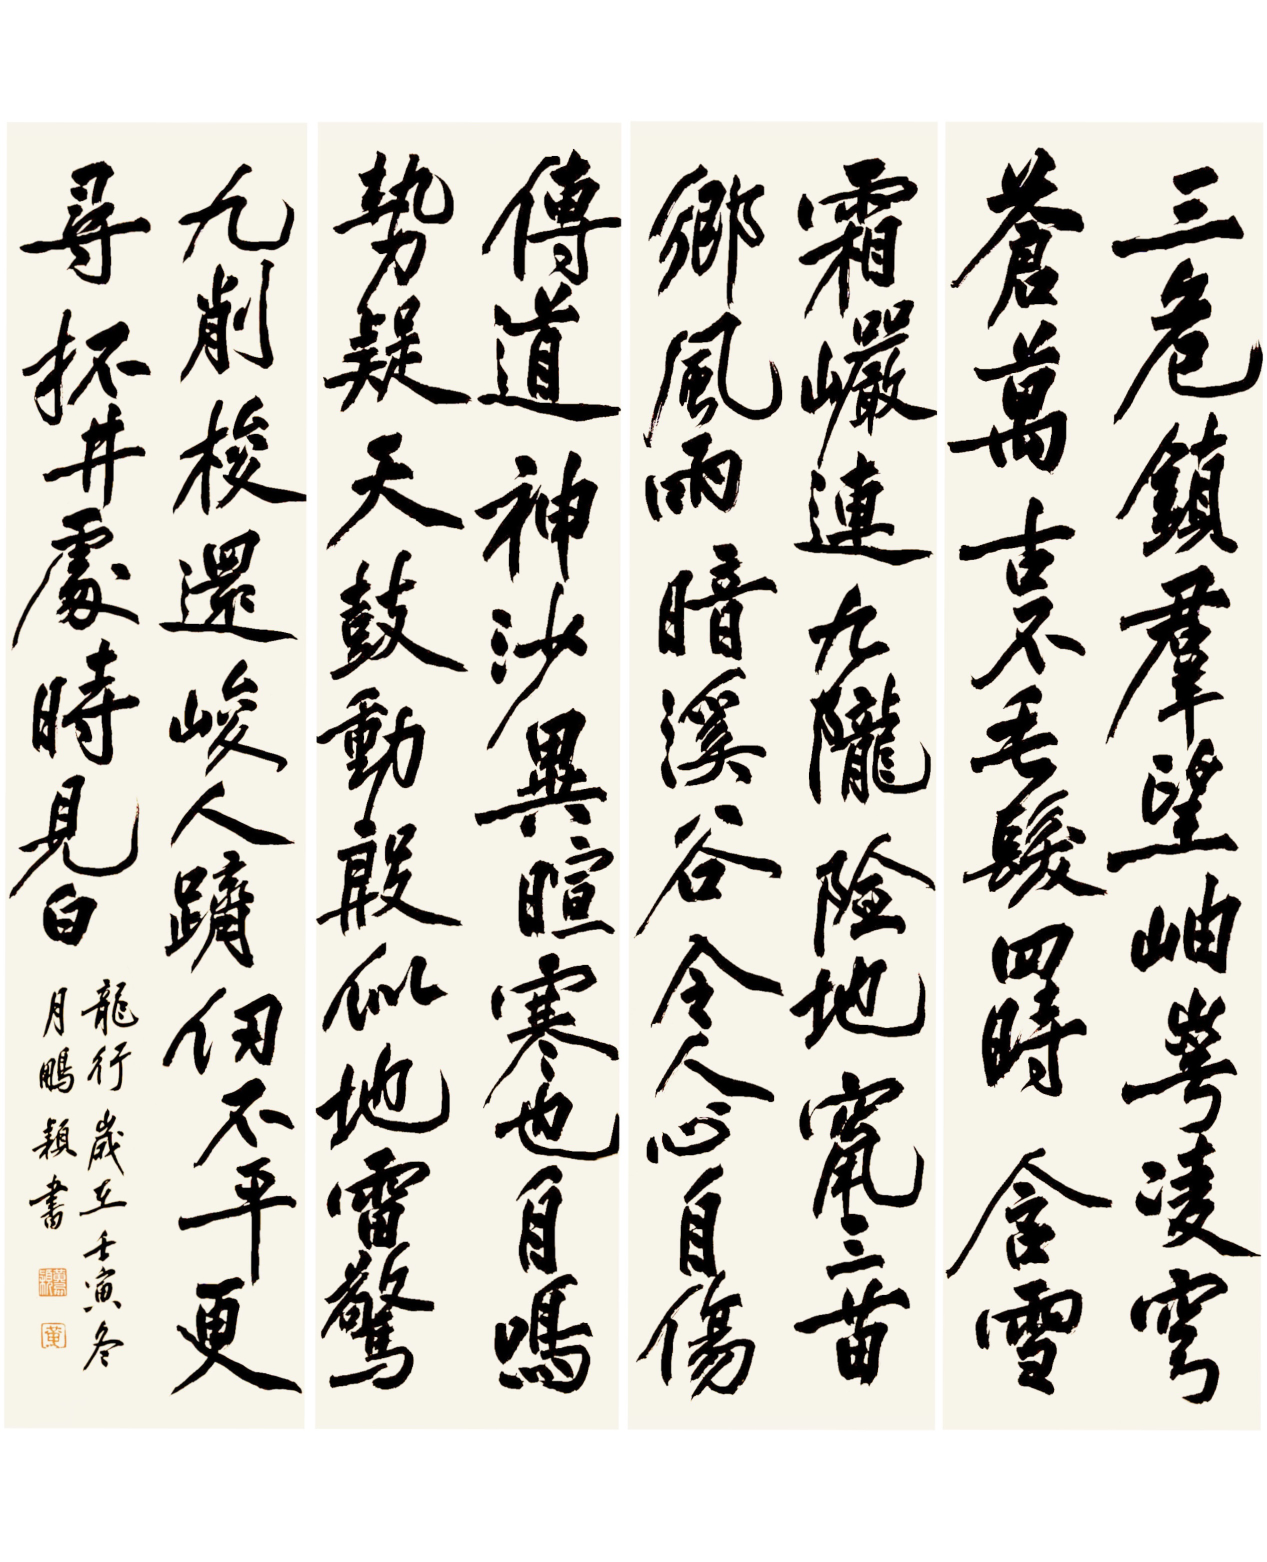 三危鎮羣望岫崿凌穹
蒼萬古不毛髮四時含雪
霜巖連九隴險地竄三苗
鄉風雨暗溪谷令人心自傷
傳道神沙異暄寒也自鳴
勢疑天鼓動殷似地雷驚
九削梭還峻人躋仞不平更
尋抔井處時見白
龍行 歲在壬寅冬
月鵬穎書